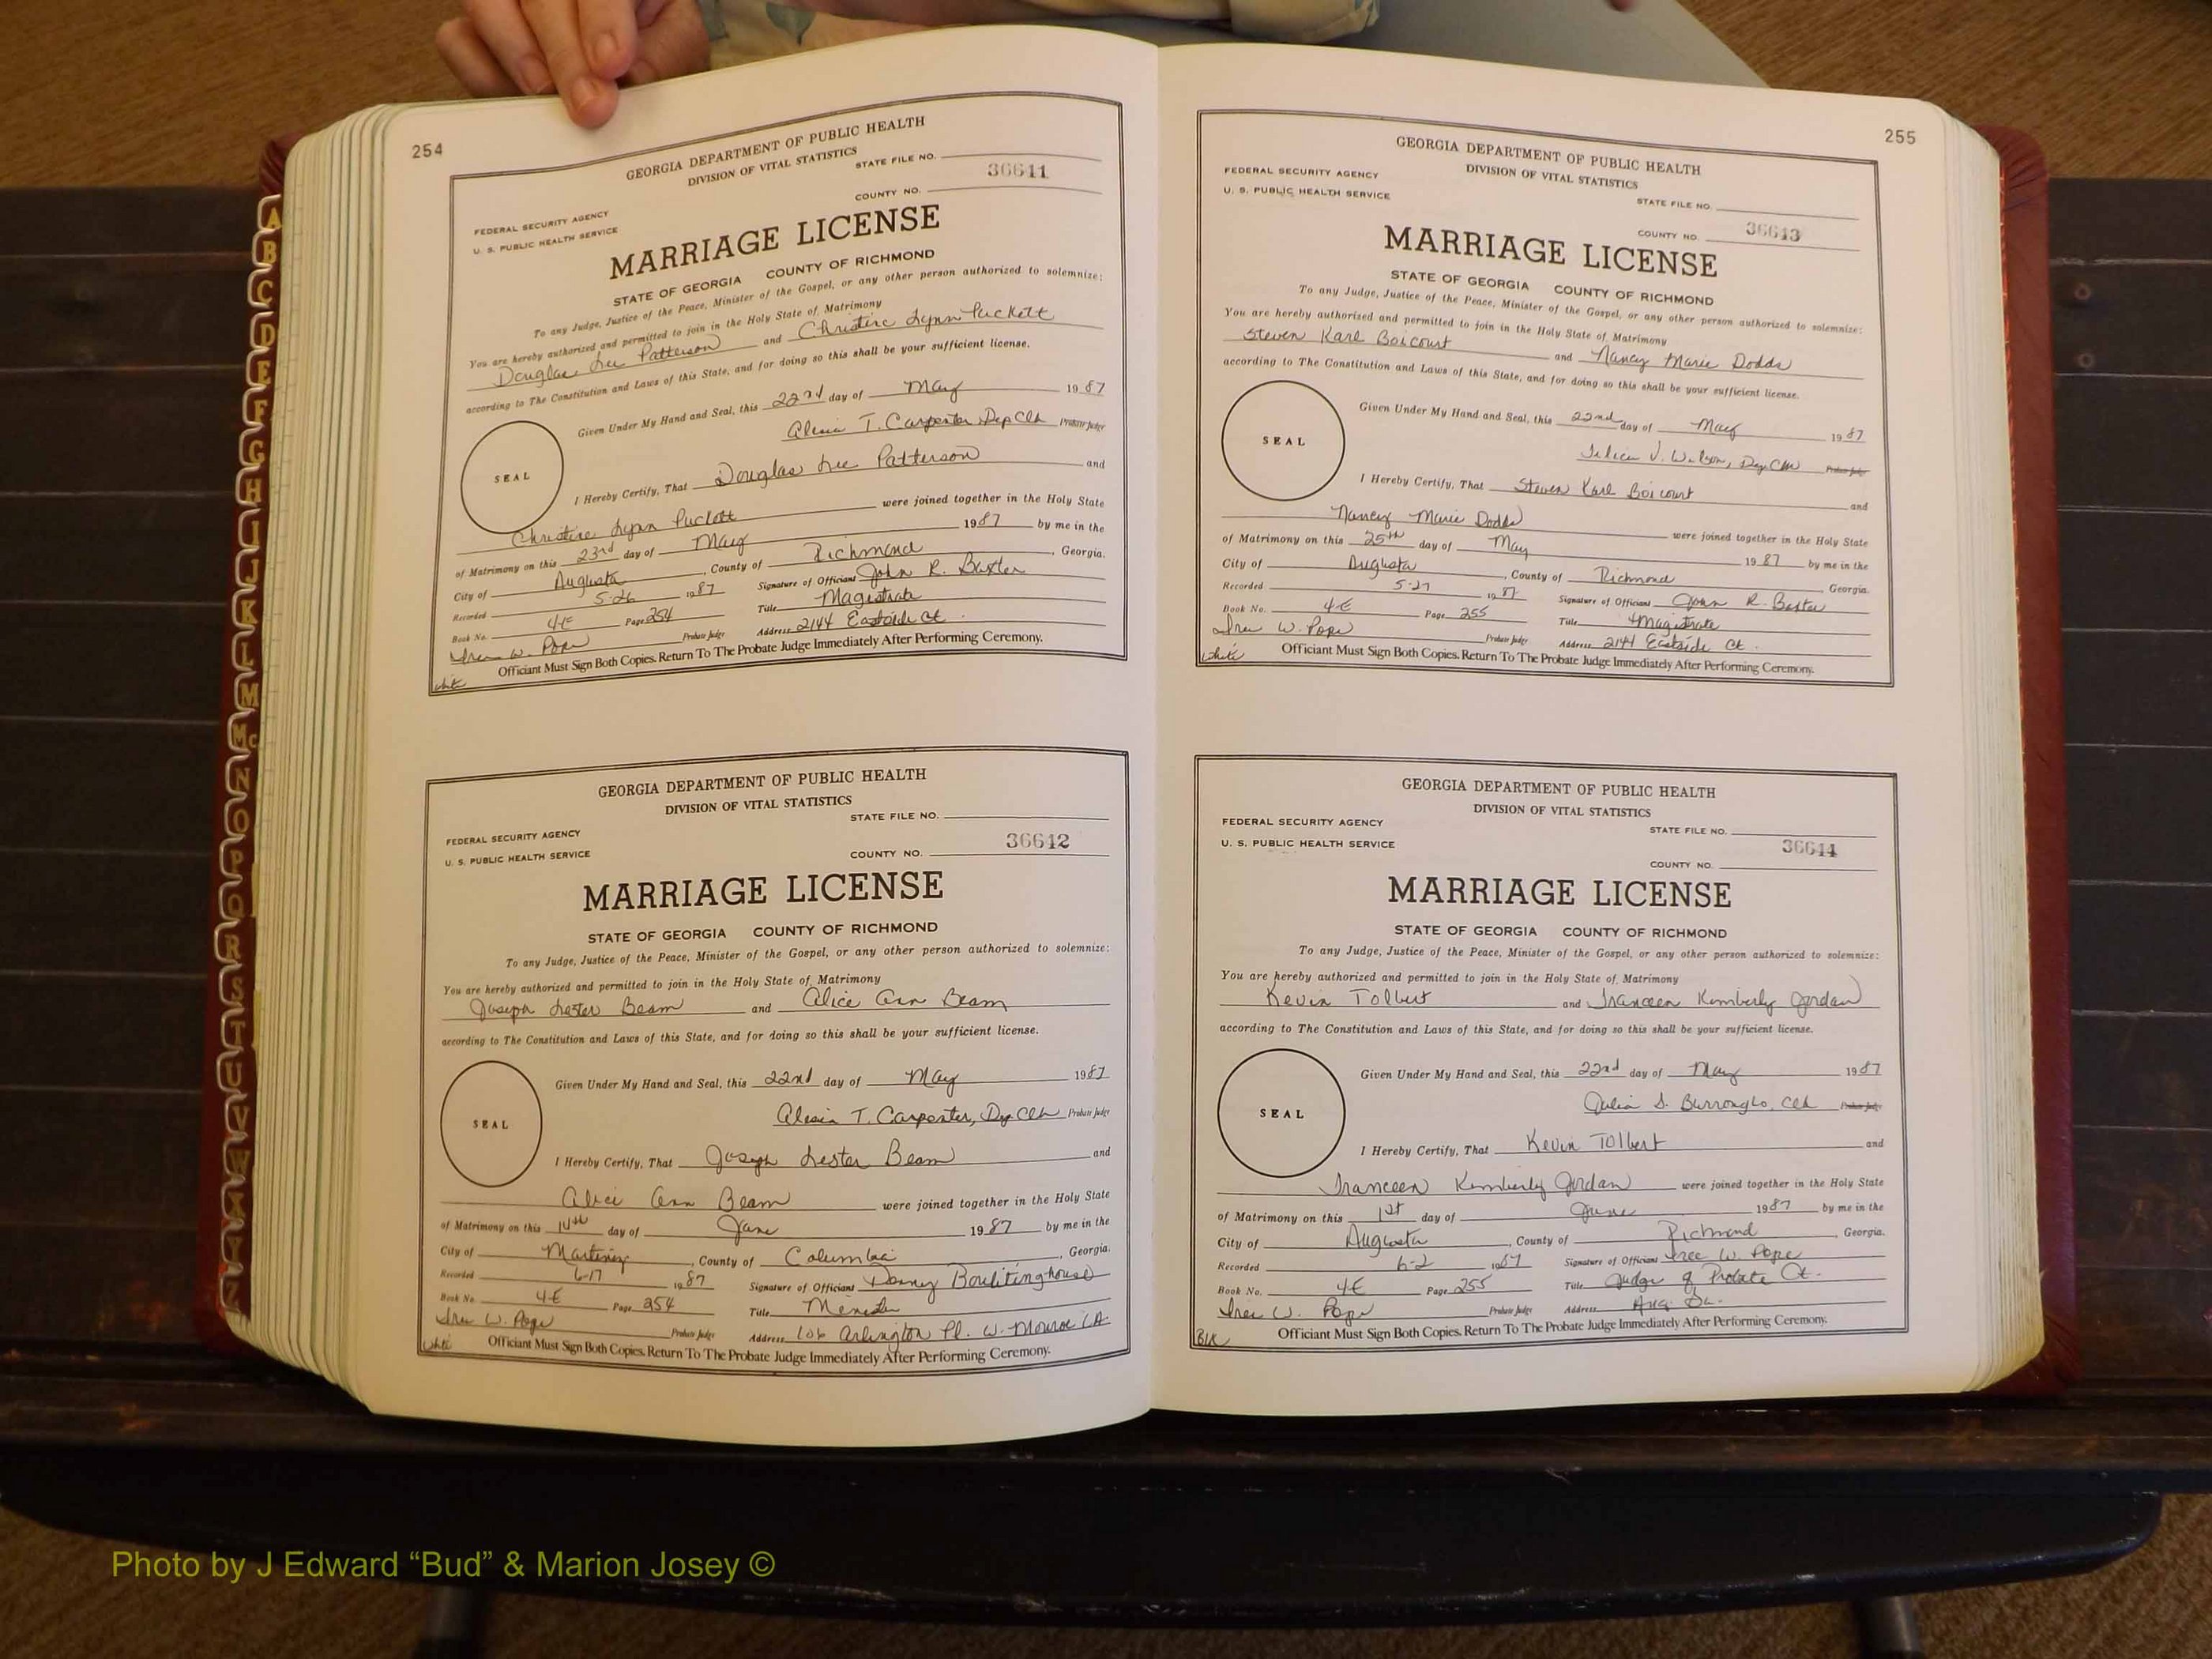 254
GEORGIA DEPARTMENT OF PUBLIC HEALTH
DIVISION OF VITAL STATISTICS
STATE FILE NO.
36641
COUNTY NO.
FEDERAL SECURITY AGENCY
U. S. PUBLIC HEALTH SERVICE
MARRIAGE LICENSE
STATE OF GEORGIA COUNTY OF RICHMOND
To any Judge, Justice of the Peace, Minister of the Gospel, or any other person authorized to solemnize:
You are hereby authorized and permitted to join in the Holy State of Matrimony
Douglas Lee Patterson and Christine Lynn Puckett
according to The Constitution and Laws of this State, and for doing so this shall be your sufficient license.
Given Under My Hand and Seal, this 22nd day of May 1987
Alesia T. Carpenter, Dep Clk Probate Judge
SEAL
I Hereby Certify, That Douglas Lee Patterson and
Christine Lynn Puckett were joined together in the Holy State
of Matrimony on this 23rd day of May 1987 by me in the
City of Augusta, County of Richmond, Georgia.
Recorded 5-26 1987 Signature of Officiant John R. Baxter
Book No. 4-E Page 254 Title Magistrate
Probate Judge Address 2144 Eastside Ct.
W. Pope
Officiant Must Sign Both Copies. Return To The Probate Judge Immediately After Performing Ceremony.
White
GEORGIA DEPARTMENT OF PUBLIC HEALTH
DIVISION OF VITAL STATISTICS
STATE FILE NO.
FEDERAL SECURITY AGENCY
36642
U. S. PUBLIC HEALTH SERVICE
COUNTY NO.
MARRIAGE LICENSE
STATE OF GEORGIA COUNTY OF RICHMOND
To any Judge, Justice of the Peace, Minister of the Gospel, or any other person authorized to solemnize:
You are hereby authorized and permitted to join in the Holy State of Matrimony
Joseph Lester Beam and Alice Ann Beam
according to The Constitution and Laws of this State, and for doing so this shall be your sufficient license.
Given Under My Hand and Seal, this 22nd day of May 1987
Alesia T. Carpenter, Dep Clk Probate Judge
SEAL
I Hereby Certify, That Joseph Lester Beam and
Alice Ann Beam were joined together in the Holy State
of Matrimony on this 14th day of June 1987 by me in the
City of Martinez, County of Columbia, Georgia.
Recorded 6-17 1987 Signature of Officiant Danny
Book No. 4-E Page 254 Title
W. Pope Probate Judge Address 106 Arlington Pl. W. Monroe LA
White Officiant Must Sign Both Copies. Return To The Probate Judge Immediately After Performing Ceremony.
255
GEORGIA DEPARTMENT OF PUBLIC HEALTH
DIVISION OF VITAL STATISTICS
FEDERAL SECURITY AGENCY
U. S. PUBLIC HEALTH SERVICE
STATE FILE NO.
36643
COUNTY NO.
MARRIAGE LICENSE
STATE OF GEORGIA COUNTY OF RICHMOND
To any Judge, Justice of the Peace, Minister of the Gospel, or any other person authorized to solemnize:
You are hereby authorized and permitted to join in the Holy State of Matrimony
Steven Karl Boicourt and Nancy Marie Dodds
according to The Constitution and Laws of this State, and for doing so this shall be your sufficient license.
Given Under My Hand and Seal, this 22nd day of May 1987
J. Wilson, Dep Clk Probate Judge
SEAL
I Hereby Certify, That Steven Karl Boicourt and
Nancy Marie Dodds were joined together in the Holy State
of Matrimony on this 25th day of May 1987 by me in the
City of Augusta, County of Richmond, Georgia.
Recorded 5-27 1987 Signature of Officiant John R. Baxter
Book No. 4-E Page 255 Title Magistrate
W. Pope Probate Judge Address 2144 Eastside Ct.
White Officiant Must Sign Both Copies. Return To The Probate Judge Immediately After Performing Ceremony.
GEORGIA DEPARTMENT OF PUBLIC HEALTH
DIVISION OF VITAL STATISTICS
FEDERAL SECURITY AGENCY
STATE FILE NO.
U. S. PUBLIC HEALTH SERVICE
36644
COUNTY NO.
MARRIAGE LICENSE
STATE OF GEORGIA COUNTY OF RICHMOND
To any Judge, Justice of the Peace, Minister of the Gospel, or any other person authorized to solemnize:
You are hereby authorized and permitted to join in the Holy State of Matrimony
Kevin Tolbert and Franceen Kimberly Jordan
according to The Constitution and Laws of this State, and for doing so this shall be your sufficient license.
Given Under My Hand and Seal, this 22nd day of May 1987
Julia S. Burroughs, Clk Probate Judge
SEAL
I Hereby Certify, That Kevin Tolbert and
Franceen Kimberly Jordan were joined together in the Holy State
of Matrimony on this 1st day of June 1987 by me in the
City of Augusta, County of Richmond, Georgia.
Recorded 6-2 1987 Signature of Officiant W. Pope
Book No. 4-E Page 255 Title Judge of Probate Ct.
W. Pope Probate Judge Address Aug. Ga.
Blk Officiant Must Sign Both Copies. Return To The Probate Judge Immediately After Performing Ceremony.
A
B
C
D
E
F
G
H
I
J
K
L
M
Mc
N
O
P
Q
R
S
T
U
V
W
X
Y
Z
Photo by J Edward “Bud” & Marion Josey ©